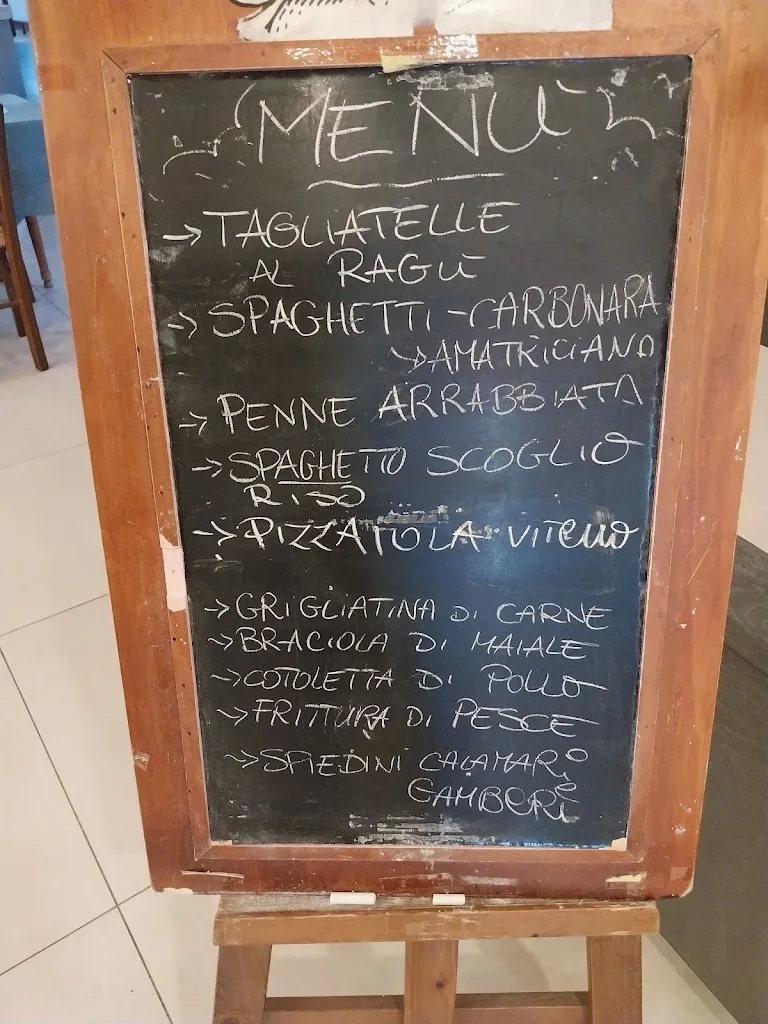 MENÙ
→ TAGLIATELLE
AL RAGÙ
→ SPAGHETTI - CARBONARA
→ AMATRICIANA
→ PENNE ARRABBIATA
→ SPAGHETTO SCOGLIO
RISO
→ PIZZAIOLA VITELLO
→ GRIGLIATINA DI CARNE
→ BRACIOLA DI MAIALE
→ COTOLETTA DI POLLO
→ FRITTURA DI PESCE
→ SPIEDINI CALAMARI e
GAMBERI